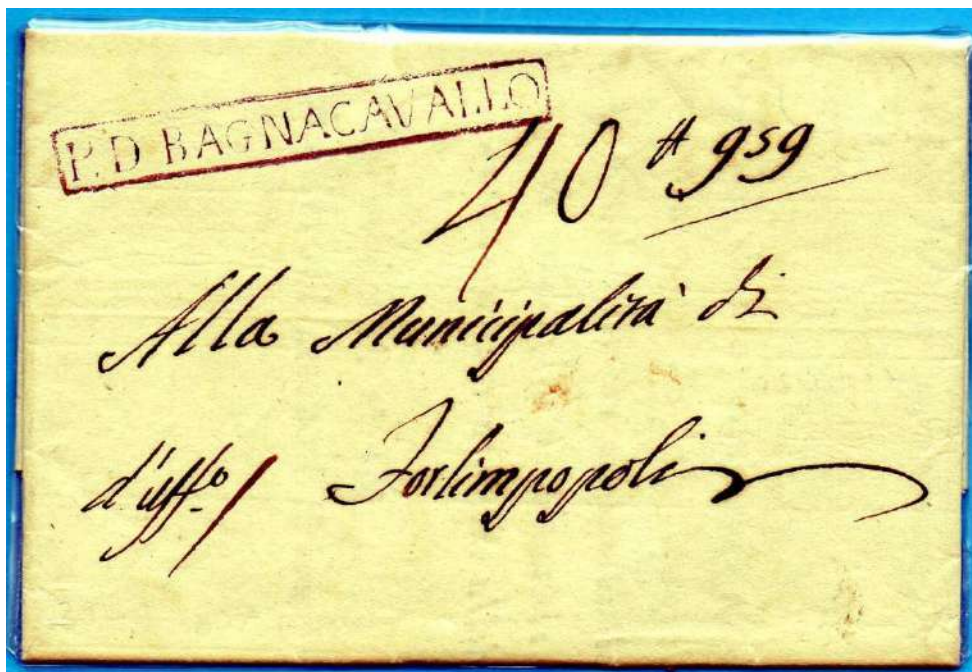 P. D BAGNACAVALLO
40 # 959
Alla Municipalità di
d'uffo. Forlimpopoli